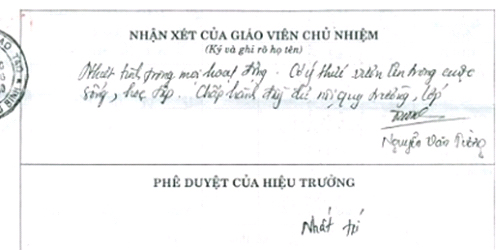 NHẬN XÉT CỦA GIÁO VIÊN CHỦ NHIỆM
(Ký và ghi rõ họ tên)
Nhiệt tình trong mọi hoạt động. Có ý thức vươn lên trong cuộc
sống, học tập. Chấp hành đầy đủ nội quy trường, lớp
Nguyễn Văn
PHÊ DUYỆT CỦA HIỆU TRƯỞNG
Nhất trí